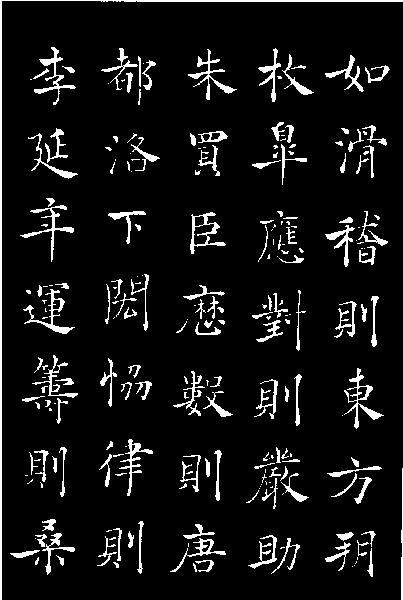 如滑稽則東方朔
枚皐應對則嚴助
朱買臣歷數則唐
都洛下閎恊律則
李延年運籌則桑